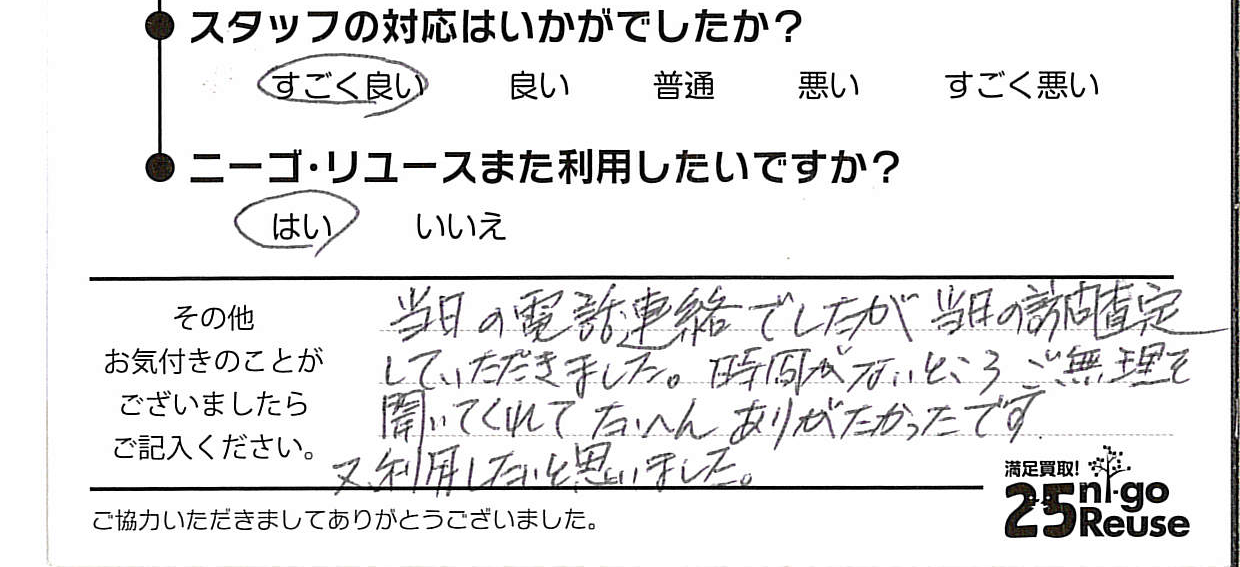 スタッフの対応はいかがでしたか?
すごく良い 良い 普通 悪い すごく悪い
ニーゴ・リユースまた利用したいですか?
はい いいえ
その他
お気付きのことが
ございましたら
ご記入ください。
当日の電話連絡でしたが当日の訪問査定
していただきました。時間がないところ ご無理を
聞いてくれて たいへん ありがたかったです.
又利用したいと思いました。
満足買取!
25 ni-go
Reuse
ご協力いただきましてありがとうございました。